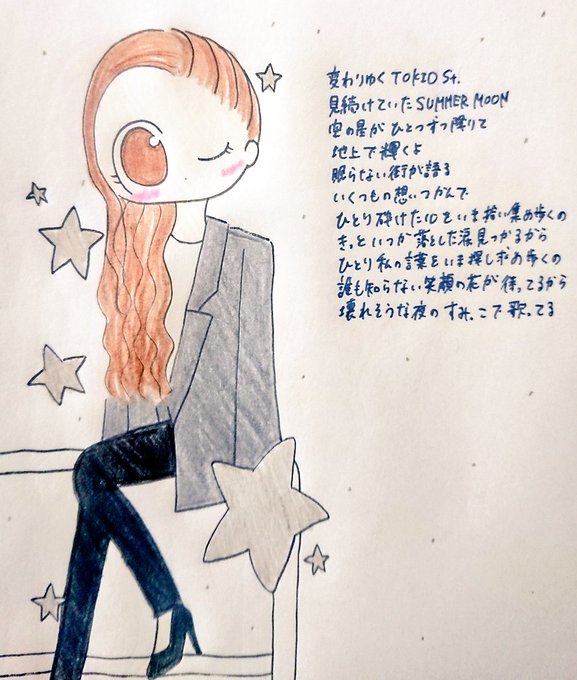 変わりゆく TOKIO St.
見続けていた SUMMER MOON
空の星が ひとつずつ降りて
地上で輝くよ
眠らない街が語る
いくつもの想いつかんで
ひとり砕けたIDをいま拾い集め歩くの
きっといつか落とした涙見つかるから
ひとり私の言葉をいま探し求め歩くの
誰も知らない笑顔の花が待ってるから
壊れそうな夜のすみっこで歌ってる